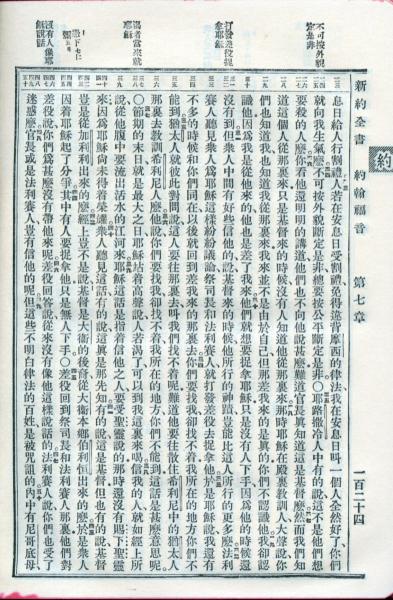 新約全書 約翰福音 第七章 一百二十四
約
不可按外貌
定是非
打發差役捉
拿耶穌
渴者當來就
耶穌
沒有人像耶
穌說話
息日給人行割禮人若在安息日受割禮免得違背摩西的律法我在安息日叫一個人全然好了你們
就向我生氣麽不可按外貌斷定是非總要按公平斷定是非○耶路撒冷人中有的說這不是他們想
要殺的人麽你看他還明明的講道他們也不向他說甚麽難道官長眞知道這是基督麽然而我們知
道這個人從那裏來只是基督來的時候沒有人知道他從那裏來那時耶穌在殿裏教訓人大聲說你
們也知道我也知道我從那裏來我來並不是由於自己但那差我來的是眞的你們不認識他我卻認
識他因爲我是從他來的他也是差了我來他們就想要捉拿耶穌只是沒有人下手因爲他的時候還
沒有到但衆人中間有好些信他的說基督來的時候他所行的神蹟豈能比這人所行的更多麽法利
賽人聽見衆人爲耶穌這樣紛紛議論祭司長和法利賽人就打發差役去捉拿他於是耶穌說我還有
不多的時候和你們同在以後就回到差我來的那裏去你們要找我卻找不着我所在的地方你們不
能到猶太人就彼此對問說這人要往那裏去叫我們找不着呢難道他要往散住希利尼中的猶太人
那裏去教訓希利尼人麽他說你們要找我卻找不着我所在的地方你們不能到這話是甚麽意思呢
○節期的末日就是最大之日耶穌站着高聲說人若渴了可以到我這裏來喝信我的人就如經上所
說從他腹中要流出活水的江河來耶穌這話是指着信他之人要受聖靈說的那時還沒有賜下聖靈
來因爲耶穌尙未得着榮耀衆人聽見這話有的說這眞是那先知有的說這是基督但也有的說基督
豈是從加利利出來的麽經上豈不是說基督是大衛的後裔從大衛本鄉伯利恒出來的麽於是衆人
因着耶穌起了分爭其中有人要捉拿他只是無人下手○差役回到祭司長和法利賽人那裏他們對
差役說你們爲甚麽沒有帶他來呢差役回答說從來沒有像他這樣說話的法利賽人說你們也受了
迷惑麽官長或是法利賽人豈有信他的呢但這些不明白律法的百姓是被咒詛的內中有尼哥底母